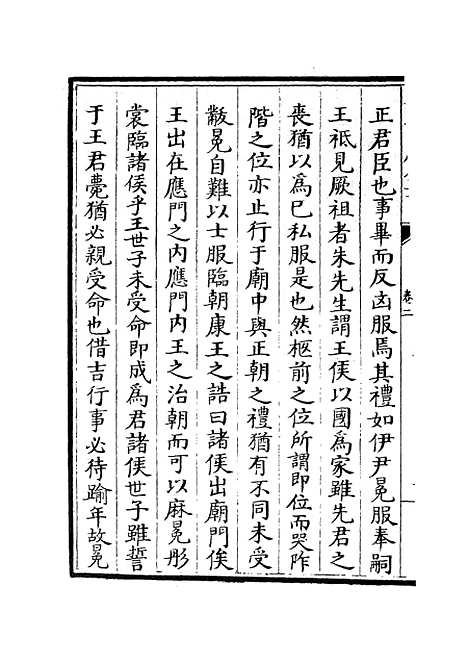 正君臣也事畢而反凶服焉其禮如伊尹冕服奉嗣
王祗見厥祖者朱先生謂王侯以國為家雖先君之
喪猶以為巳私服是也然柩前之位所謂即位而哭阼
階之位亦止行于廟中與正朝之禮猶有不同未受
黻冕自難以士服臨朝康王之誥曰諸侯出廟門俟
王出在應門之内應門内王之治朝而可以麻冕彤
裳臨諸侯乎王世子未受命即成為君諸侯世子雖誓
于王君薨猶必親受命也借吉行事必待踰年故冕
卷二